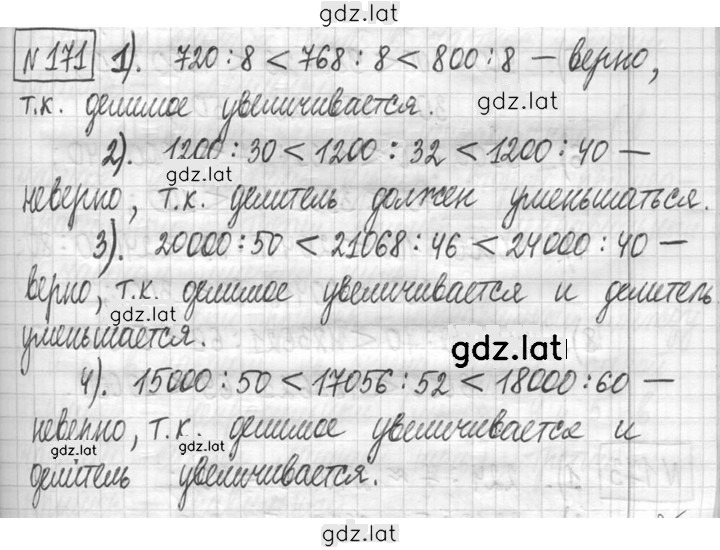 gdz.lat
N 171 1). 720 : 8 < 768 : 8 < 800 : 8 — верно,
т.к. делимое увеличивается.
gdz.lat
2). 1200 : 30 < 1200 : 32 < 1200 : 40 —
gdz.lat
неверно, т.к. делитель должен уменьшаться.
3). 20000 : 50 < 21068 : 46 < 24000 : 40 —
верно, т.к. делимое увеличивается и делитель
gdz.lat
уменьшается.
gdz.lat
4). 15000 : 50 < 17056 : 52 < 18000 : 60 —
неверно, т.к. делимое увеличивается и
gdz.lat gdz.lat
делитель увеличивается.
gdz.lat